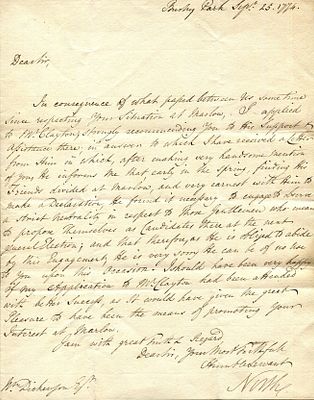 Bushy Park Sepr. 23. 1774.
Dear Sir,
In consequence of what passed between Us some time
Since respecting Your Situation at Marlow, I applied
to Mr. Clayton, strongly recommending You to His Support &
Assistance there, in answer to which I have received a Letter
from Him in which, after making very handsome mention
of You, He informs Me that early in the Spring, finding His
Friends divided at Marlow, and very earnest with Him to
made a Declaration, He found it necessary to engage to observe
a strict neutrality in respect to those Gentlemen who mean
to propose themselves as Candidates there at the next
general Election; and that therefore, as He is obliged to abide
by this Engagement, He is very sorry He can be of no use
to You upon this Occasion. I should have been very happy
if my Application to Mr. Clayton had been attended
with better Success, as it would have given Me great
Pleasure to have been the means of promoting Your
Interest at Marlow.
I am with great truth & Regard
Dear Sir, Your Most Faithfull
Humble Servant
North
Wm. Dickenson Esqr.